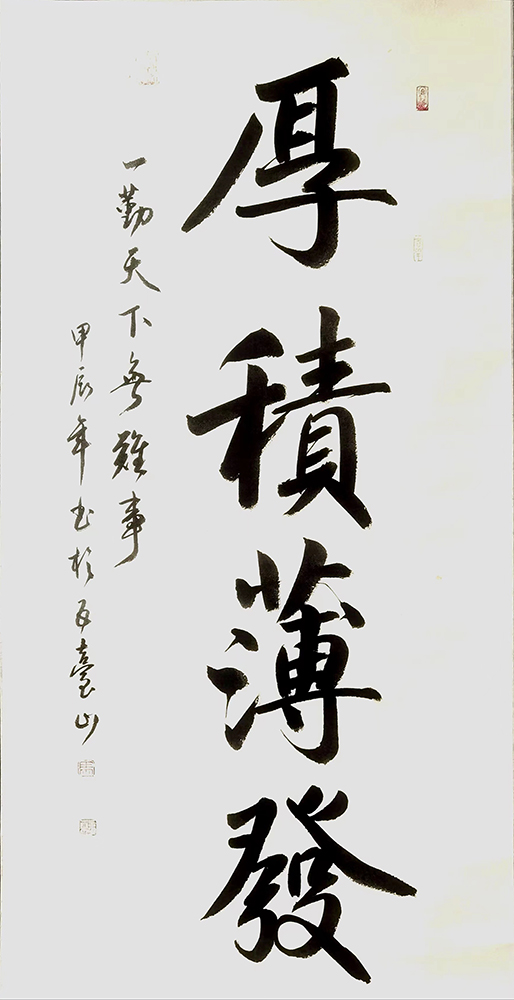 厚積薄發
一勤天下無難事
甲辰年書於五臺山